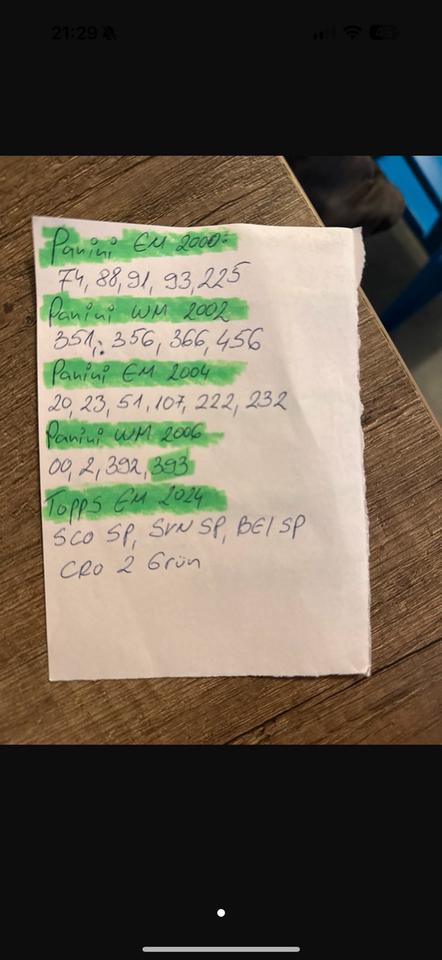 21:29
Panini EM 2000:
74, 88, 91, 93, 225
Panini WM 2002
351, 356, 366, 456
Panini EM 2004
20, 23, 51, 107, 222, 232
Panini WM 2006
00, 2, 392, 393
Topps EM 2024
SCO SP, SVN SP, BEL SP
CRO 2 Grün